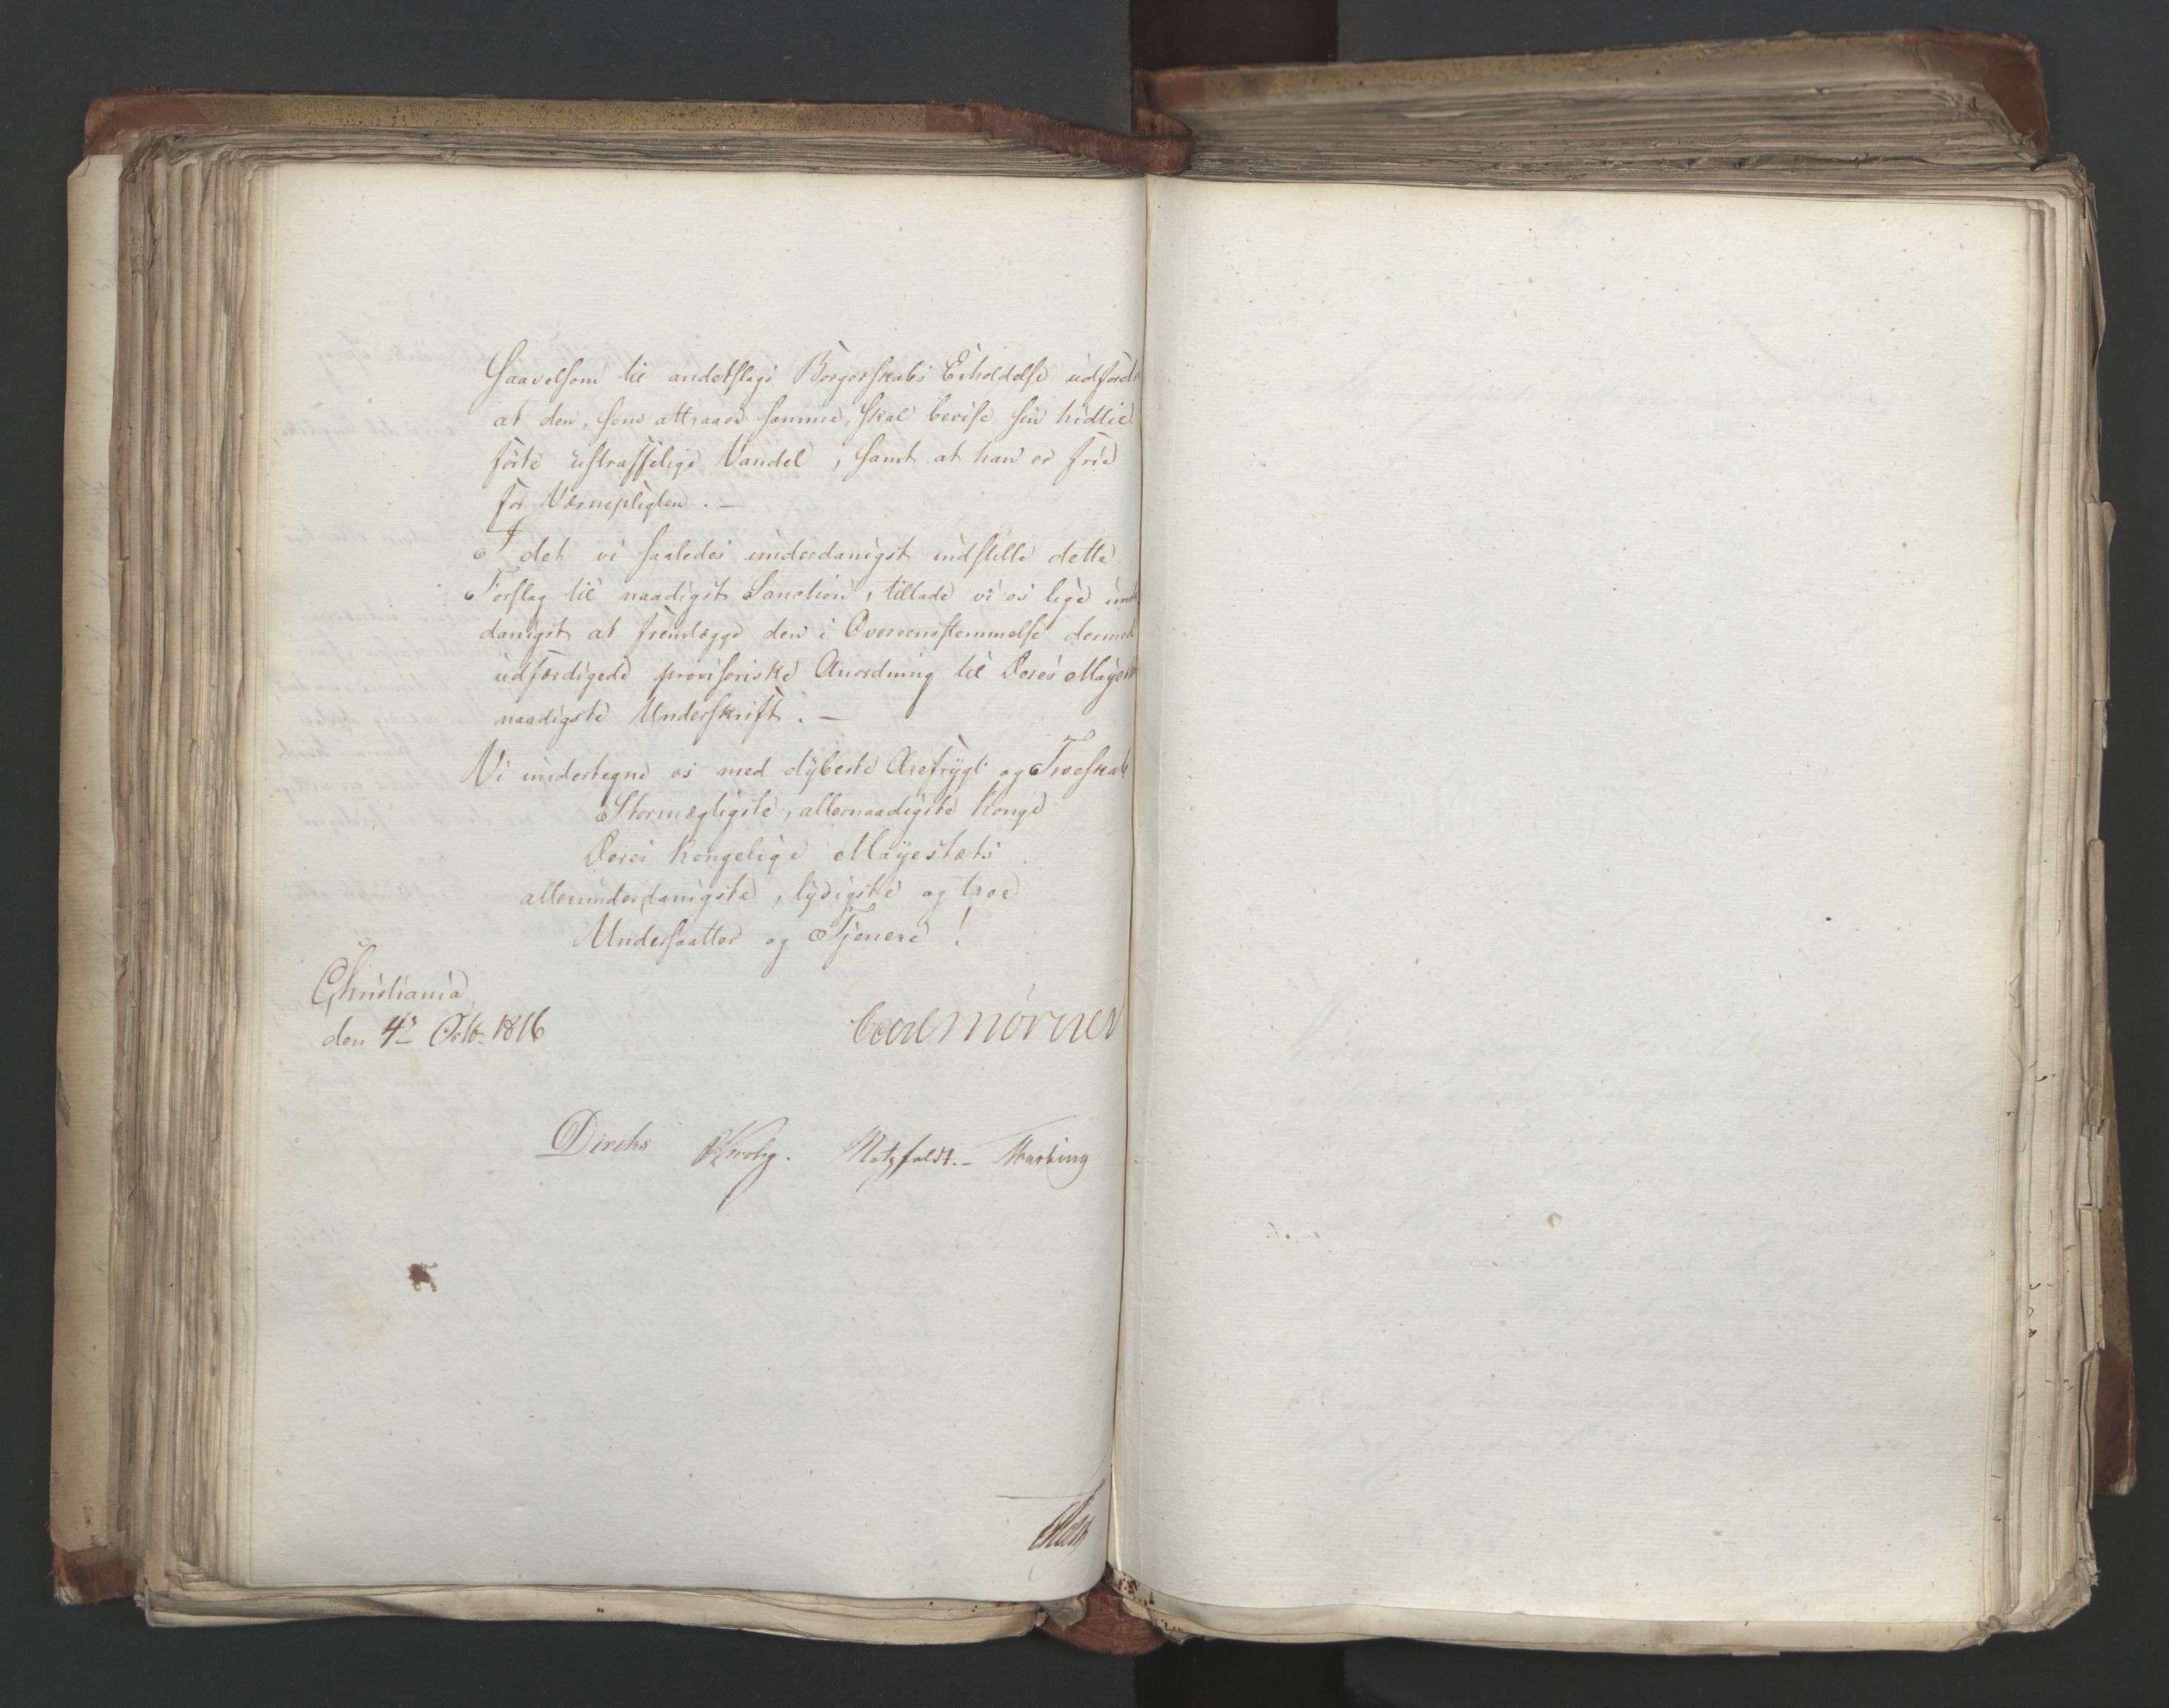 Saavelsom til andetslags Borgerskabs Erholdelse udford
at den, som attraaer samme, skal bevise sin hidtil
førte ustraffelige Vandel, samt at han er frie
for Værnepligten. –
I det vi saaledes underdanigst indstille dette
Forslag til naadigst Sanction, tillade vi os lige und
danigst at fremlægge den i Overeensstemmelse dermed
udfærdigede provisoriske Anordning til Deres Mayest
naadigste Underskrift. –
Vi undertegne os med dybeste Ærefrygt og Troeskab
Stormægtigste, allernaadigste Konge
Deres Kongelige Mayestæts
allerunderdanigste, lydigste og troe
Undersaatter og Tjenere!
Christiania
den 4de Octb. 1816
Carl Mörner
Diriks Krohg. Motzfeldt. –